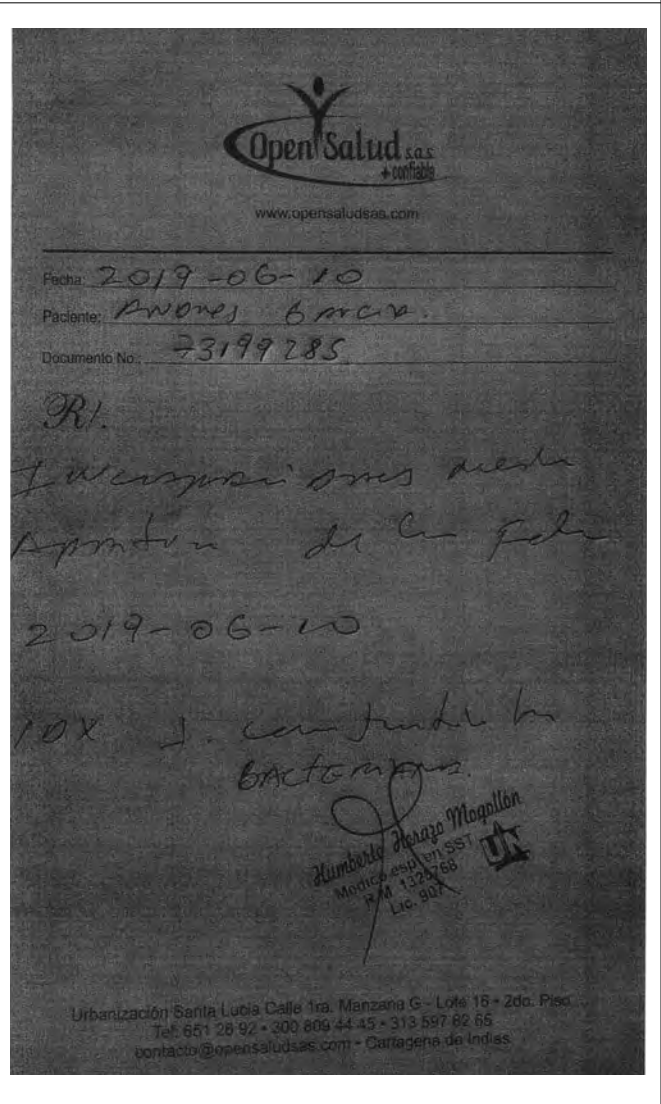 Open Salud s.a.s
+ confiable
www.opensaludsas.com
Fecha: 2019-06-10
Paciente: Andres Garcia.
Documento No.: 73199285
R/.
de la
2019-06-10
IDX 1.
BACTERIANA.
Humberto Herazo Mogollón
Medico esp. en SST
R.M. 1325768
Lic. 907
UN
Urbanización Santa Lucia Calle 1ra. Manzana G - Lote 16 • 2do. Piso
Tel: 651 26 92 • 300 809 44 45 • 313 597 62 65
contacto@opensaludsas.com • Cartagena de Indias